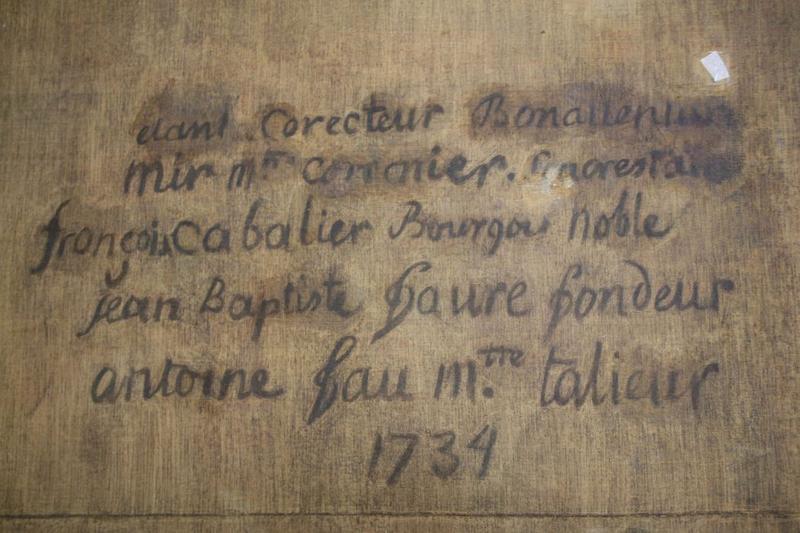 etant corecteur Bonaventure
mir m.tre cordonier. honorest
françois cabalier Bourgois noble
jean Baptiste faure fondeur
antoine fau m.tre talieur
1734